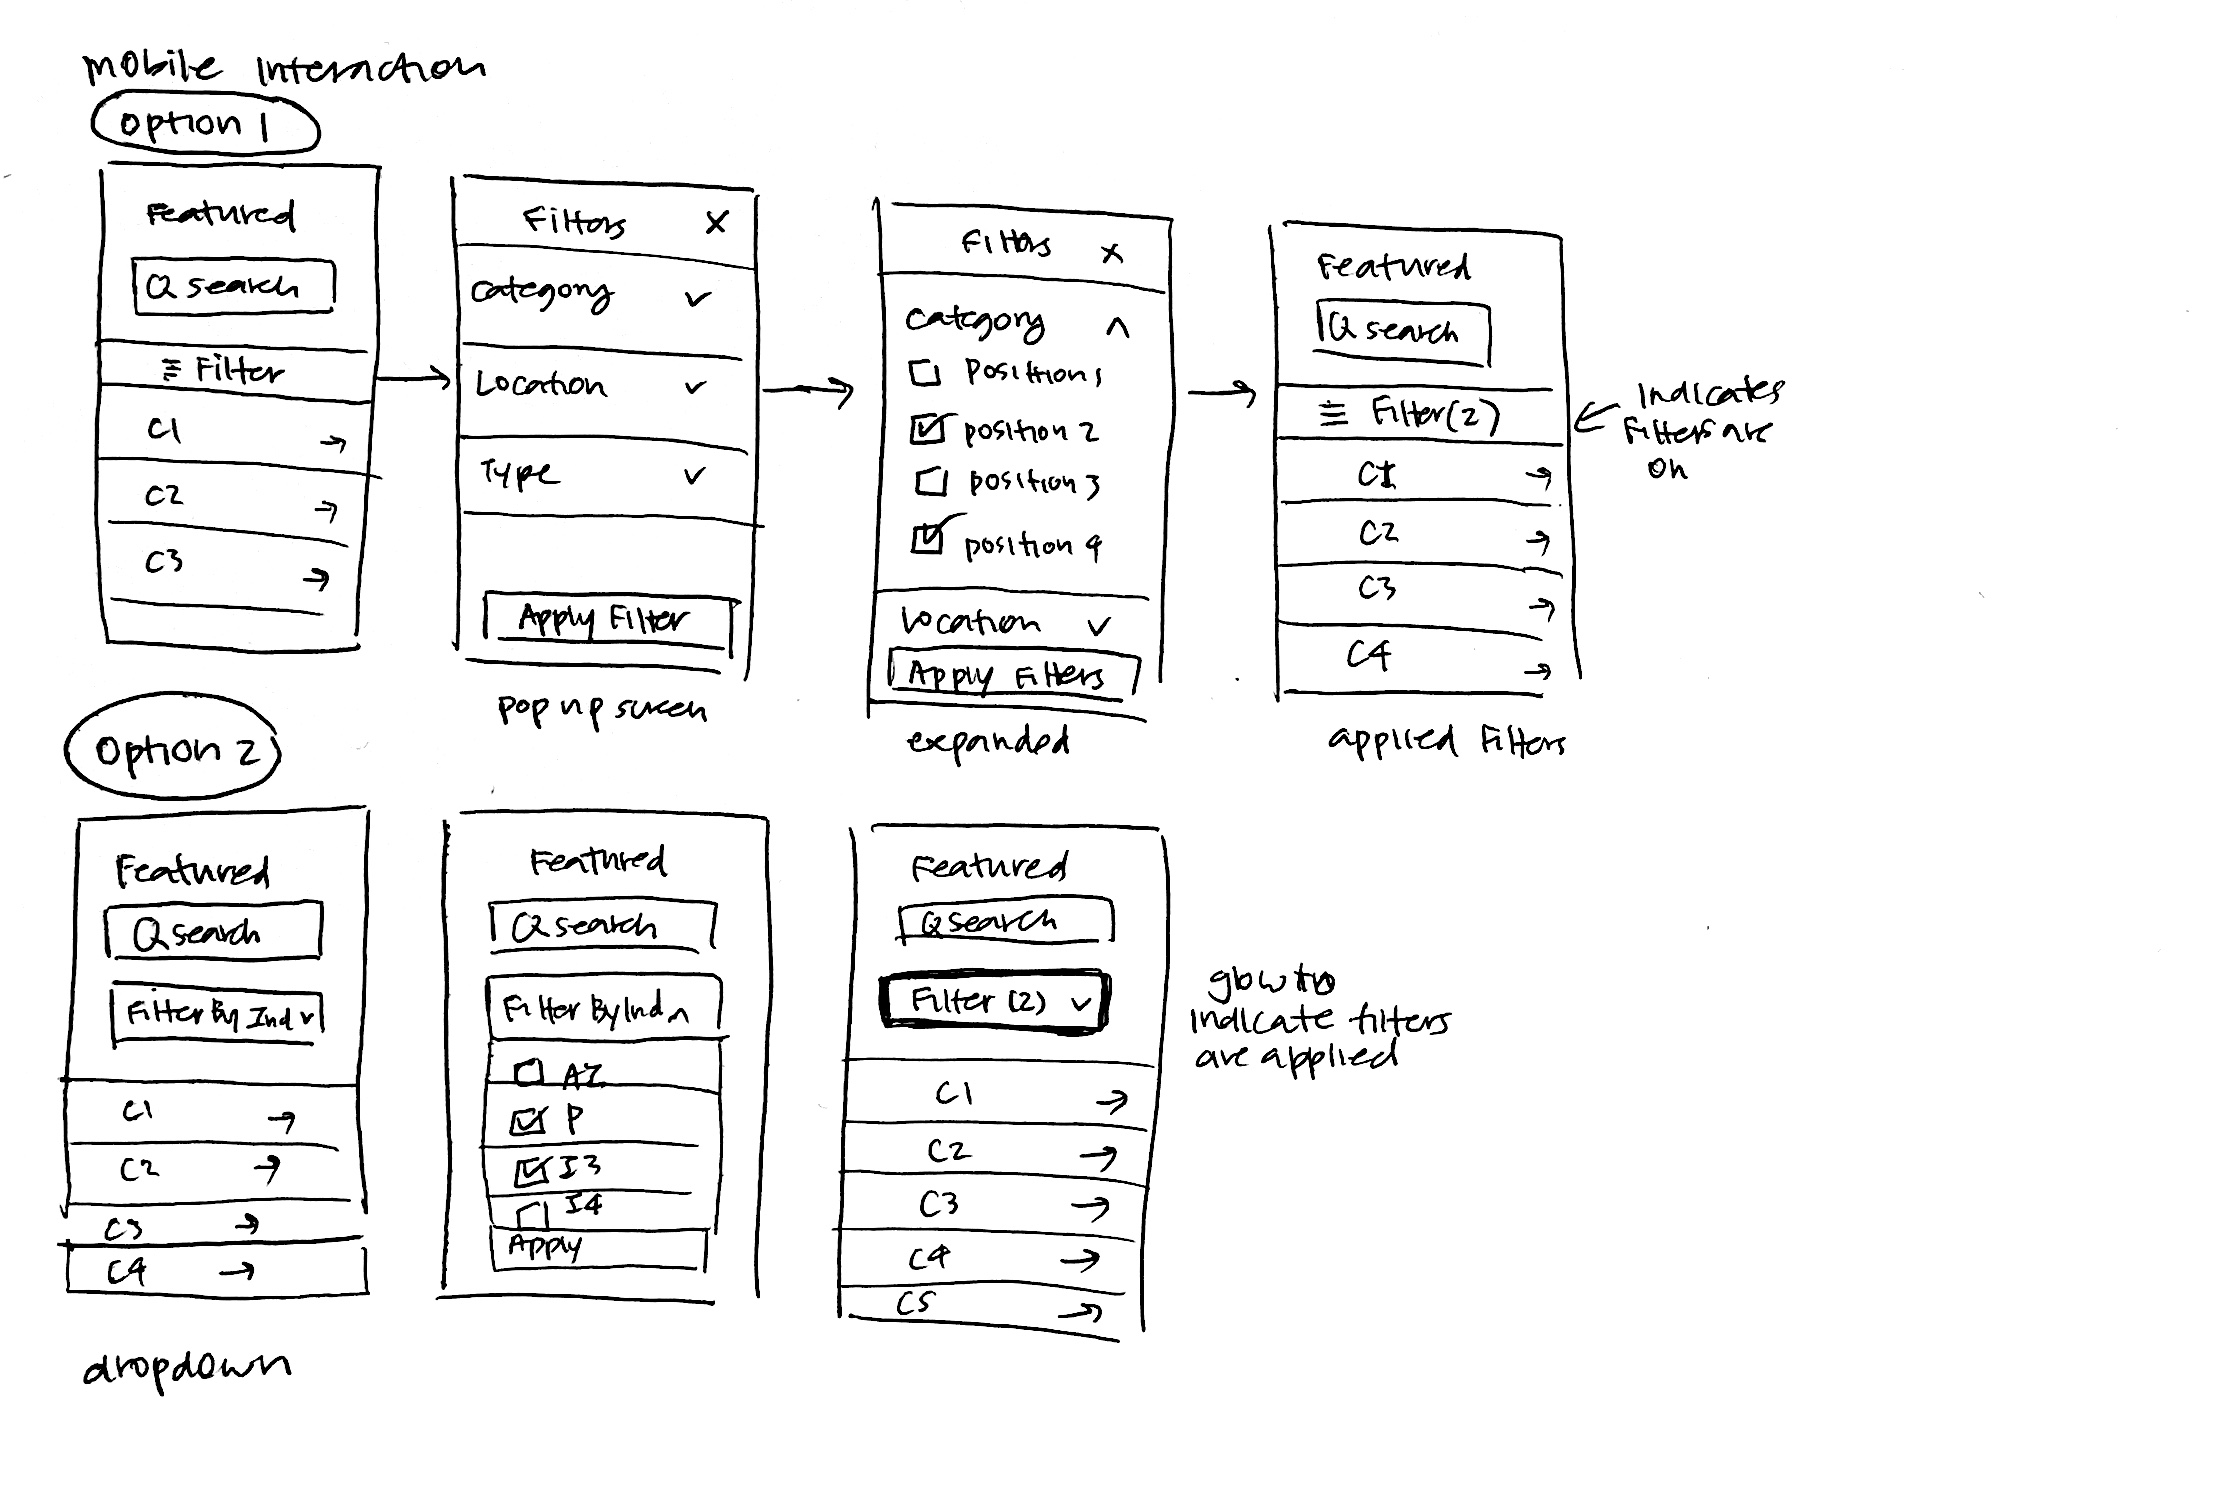 mobile interaction
option 1
Featured
search
Filter
C1
C2
C3
Filters X
Category
Location
Type
Apply Filter
pop up screen
Filters X
Category
Position 1
position 2
position 3
position 4
Location
Apply Filters
expanded
Featured
search
Filter (2)
C1
C2
C3
C4
applied Filters
indicates
filters are
on
Option 2
Featured
search
Filter By Ind
C1
C2
C3
C4
dropdown
Featured
search
Filter By Ind
P
I3
I4
Apply
Featured
search
Filter (2)
C1
C2
C3
C4
C5
glow to
indicate filters
are applied